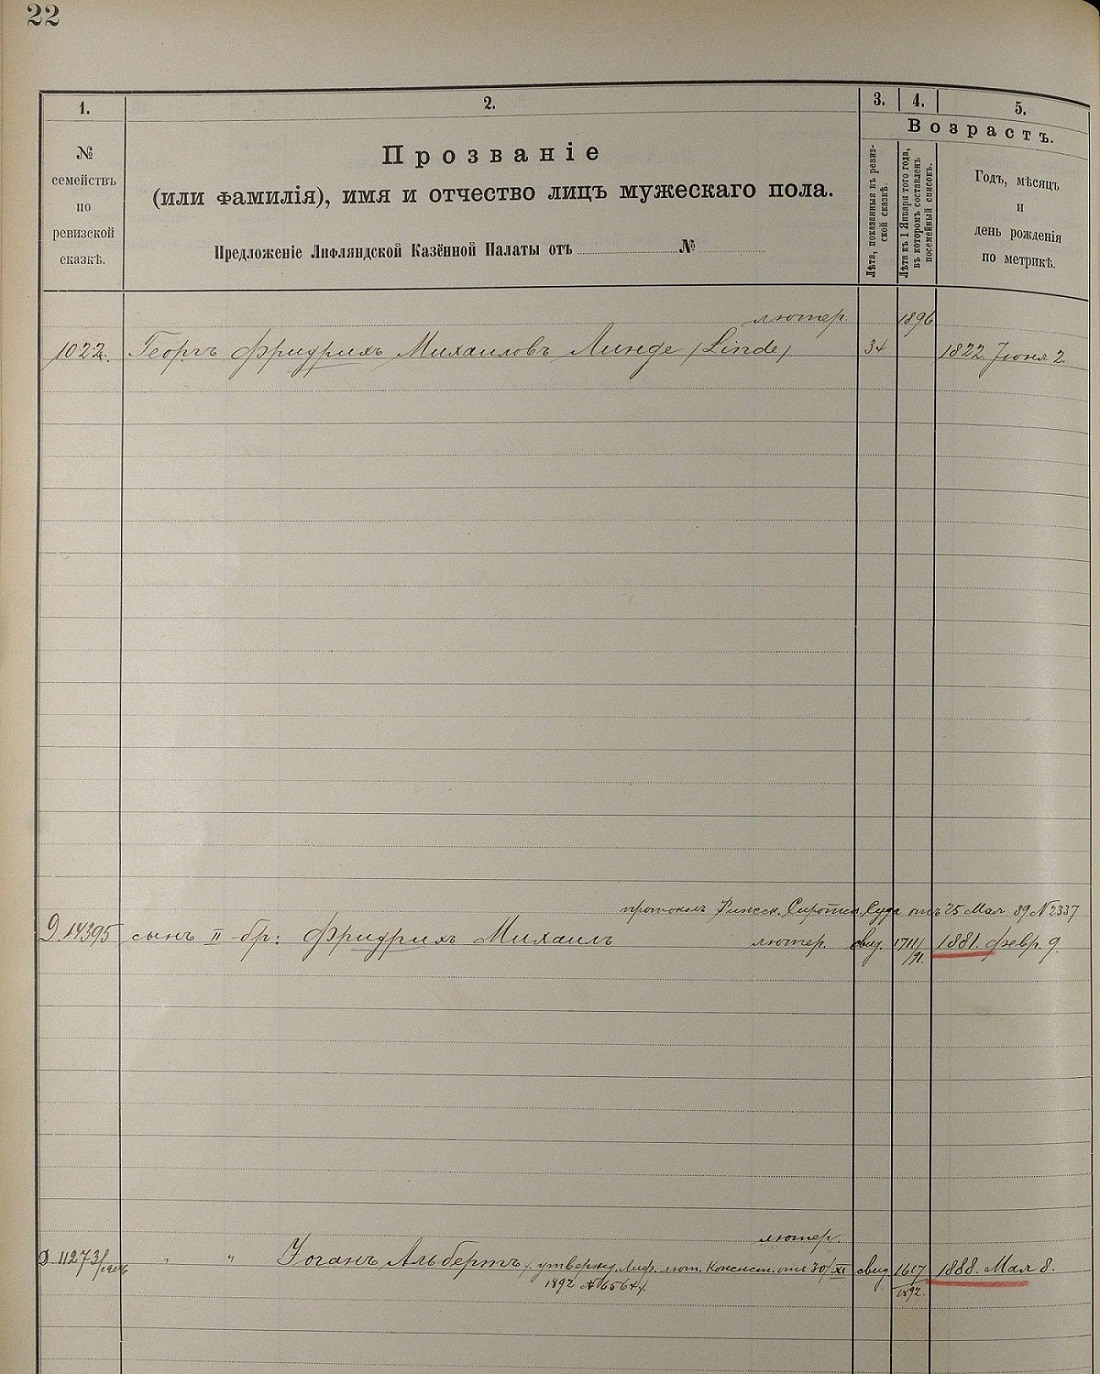 22
1.
2.
3.
4.
5.
Возрастъ.
№
семействъ
по
ревизской
сказкѣ.
Прозваніе
(или фамилія), имя и отчество лицъ мужескаго пола.
Предложеніе Лифляндской Казённой Палаты отъ № 
Лѣта, показанныя въ ревиз-
ской сказкѣ.
Лѣта къ 1 Января того года,
въ которомъ составленъ
посемейный списокъ.
Годъ, мѣсяцъ
и
день рожденія
по метрикѣ.
лютер. 1896
1022. Георгъ Фридрихъ Михаиловъ Линде (Linde) 34 1822. Іюня 2.
протоколъ Рижск. Сиротск. Суда отъ 25 Мая 89 № 2337
Д. 14395 сынъ II бр: Фридрихъ Михаилъ лютер. свид. 1711/91. 1881. февр. 9.
лютер.
Д 11273 " " Іоганъ Альбертъ, утвержд. Лиф. лют. Консист. отъ 30/XI свид 1617/1892. 1888. Мая 8.
1892 № 6564